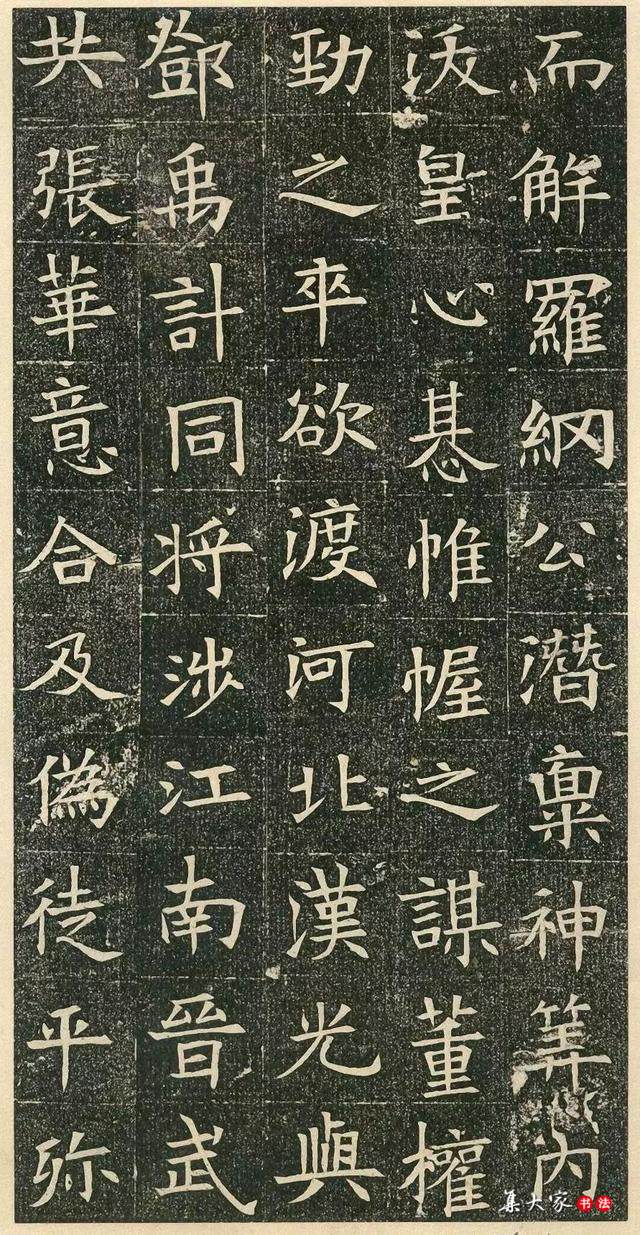 而解羅網公潛稟神筭內
沃皇心惎帷幄之謀董權
勁之卒欲渡河北漢光與
鄧禹計同將涉江南晉武
共張華意合及偽徒平弥
集大家书法